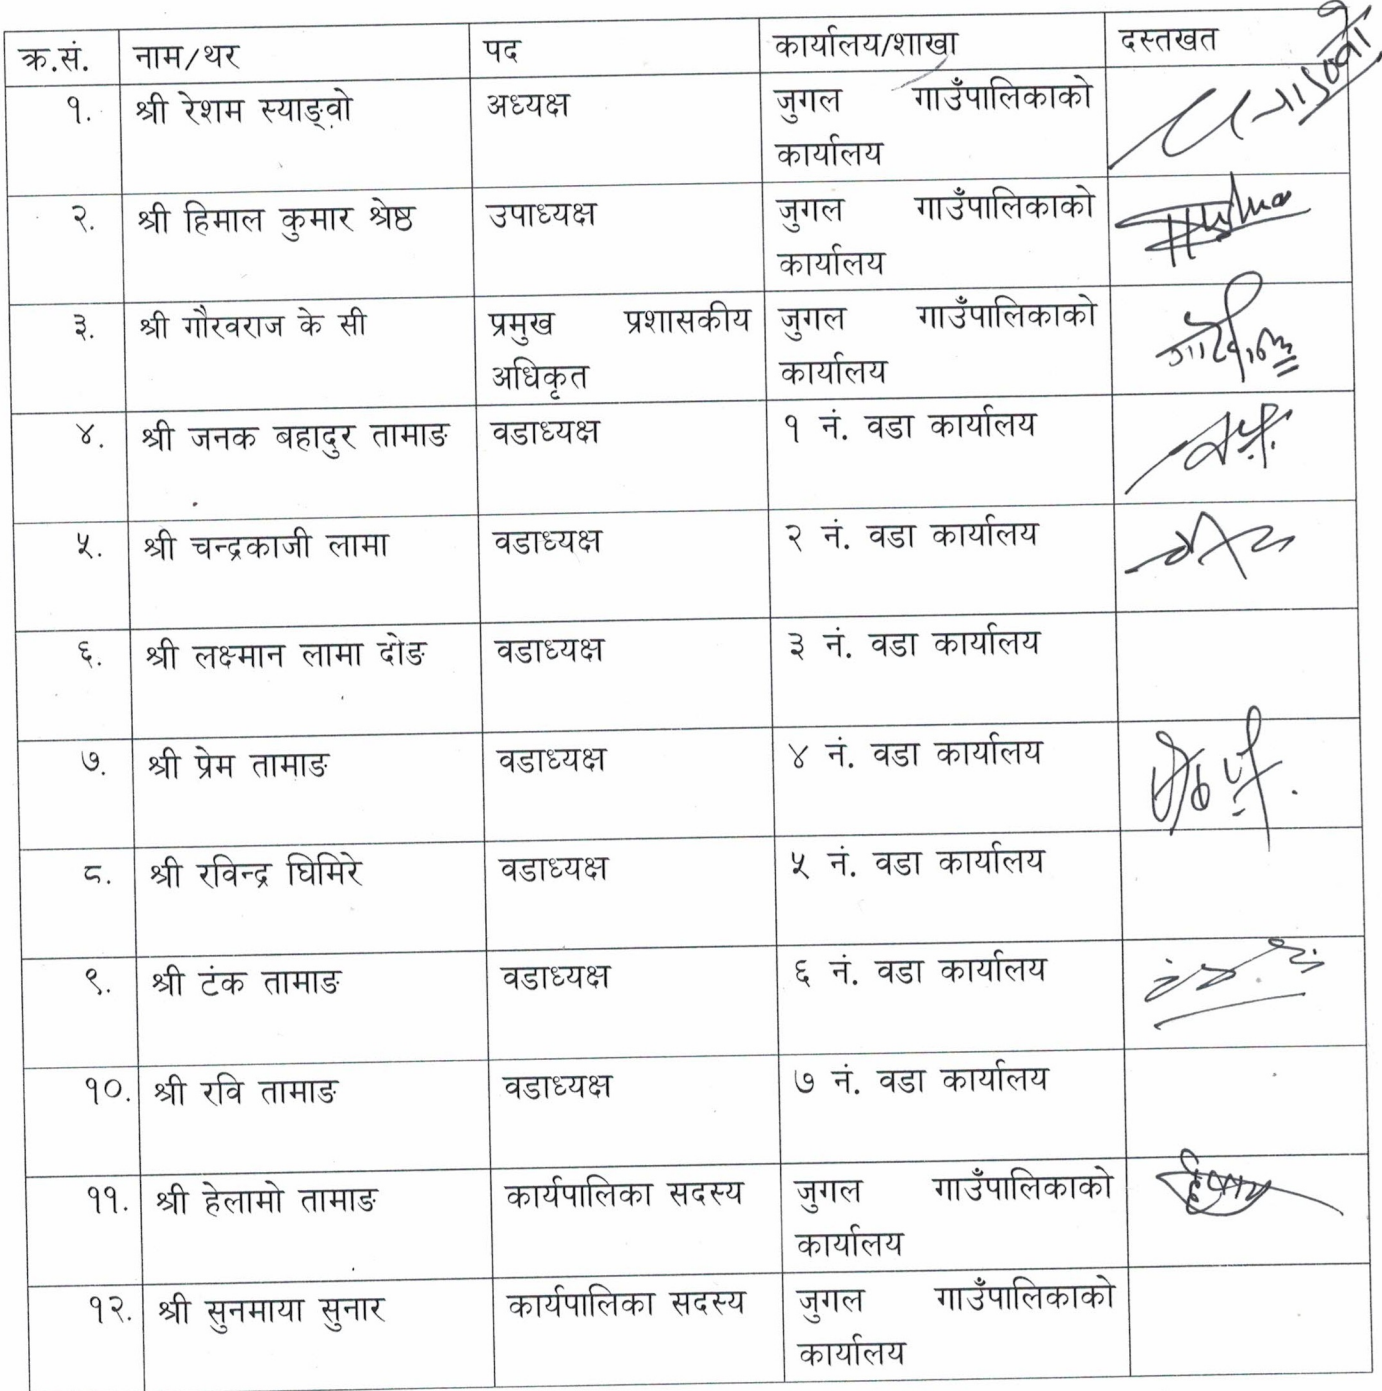 क्र.सं. नाम/थर पद कार्यालय/शाखा दस्तखत
१. श्री रेशम स्याङ्वो अध्यक्ष जुगल गाउँपालिकाको
कार्यालय
२. श्री हिमाल कुमार श्रेष्ठ उपाध्यक्ष जुगल गाउँपालिकाको
कार्यालय
३. श्री गौरवराज के सी प्रमुख प्रशासकीय जुगल गाउँपालिकाको
अधिकृत कार्यालय
४. श्री जनक बहादुर तामाङ वडाध्यक्ष १ नं. वडा कार्यालय
५. श्री चन्द्रकाजी लामा वडाध्यक्ष २ नं. वडा कार्यालय
६. श्री लक्ष्मान लामा दोङ वडाध्यक्ष ३ नं. वडा कार्यालय
७. श्री प्रेम तामाङ वडाध्यक्ष ४ नं. वडा कार्यालय
८. श्री रविन्द्र घिमिरे वडाध्यक्ष ५ नं. वडा कार्यालय
९. श्री टंक तामाङ वडाध्यक्ष ६ नं. वडा कार्यालय
१०. श्री रवि तामाङ वडाध्यक्ष ७ नं. वडा कार्यालय
११. श्री हेलामो तामाङ कार्यपालिका सदस्य जुगल गाउँपालिकाको
कार्यालय
१२. श्री सुनमाया सुनार कार्यपालिका सदस्य जुगल गाउँपालिकाको
कार्यालय